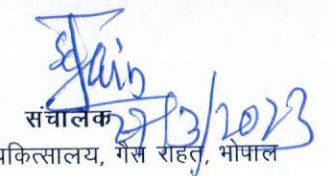 Jain
संचालक
27/3/2023
चिकित्सालय, गैस राहत, भोपाल